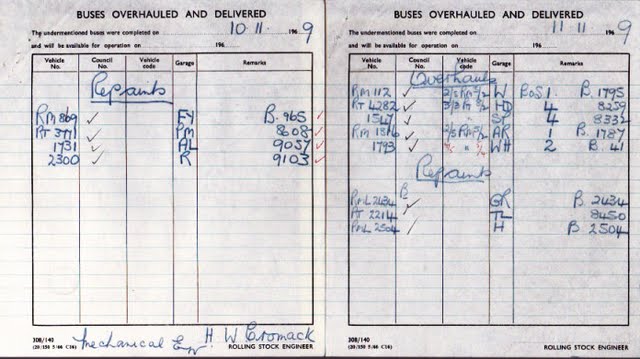 BUSES OVERHAULED AND DELIVERED
The undermentioned buses were completed on 10.11. 196 9
and will be available for operation on 196
Vehicle No. Council No. Vehicle code Garage Remarks
Repaints
RM 869 ✓ FY B. 965 ✓
RT 3771 ✓ PM 8608 ✓
1731 ✓ AL 9057 ✓
2300 ✓ R 9103 ✓
308/140
Mechanical Eng H. W Cromack
ROLLING STOCK ENGINEER
BUSES OVERHAULED AND DELIVERED
The undermentioned buses were completed on 11.11 196 9
and will be available for operation on 196
Vehicle No. Council No. Vehicle code Garage Remarks
Overhauls
RM 112 ✓ W BoS 1. B. 1795
RT 4282 ✓ HD 4 8259
1547 ✓ " 4 8332
RM 1816 ✓ AR 1 B. 1787
1793 ✓ " WH 2 B. 41
Repaints
RML 2434 B ✓ GR B. 2434
RT 2214 ✓ TL 8450
RML 2504 ✓ H B 2504
308/140
ROLLING STOCK ENGINEER